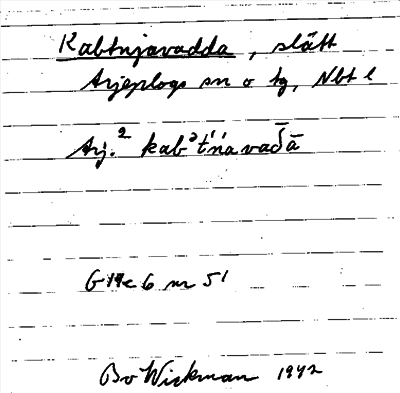 Kabtnjavadda, slätt
Arjeplogs sn o tg, Nbt l
Arj.² kabᵊt́ńavaδ̄ā
G 19c 6 nr 51
Bo Wickman 1942